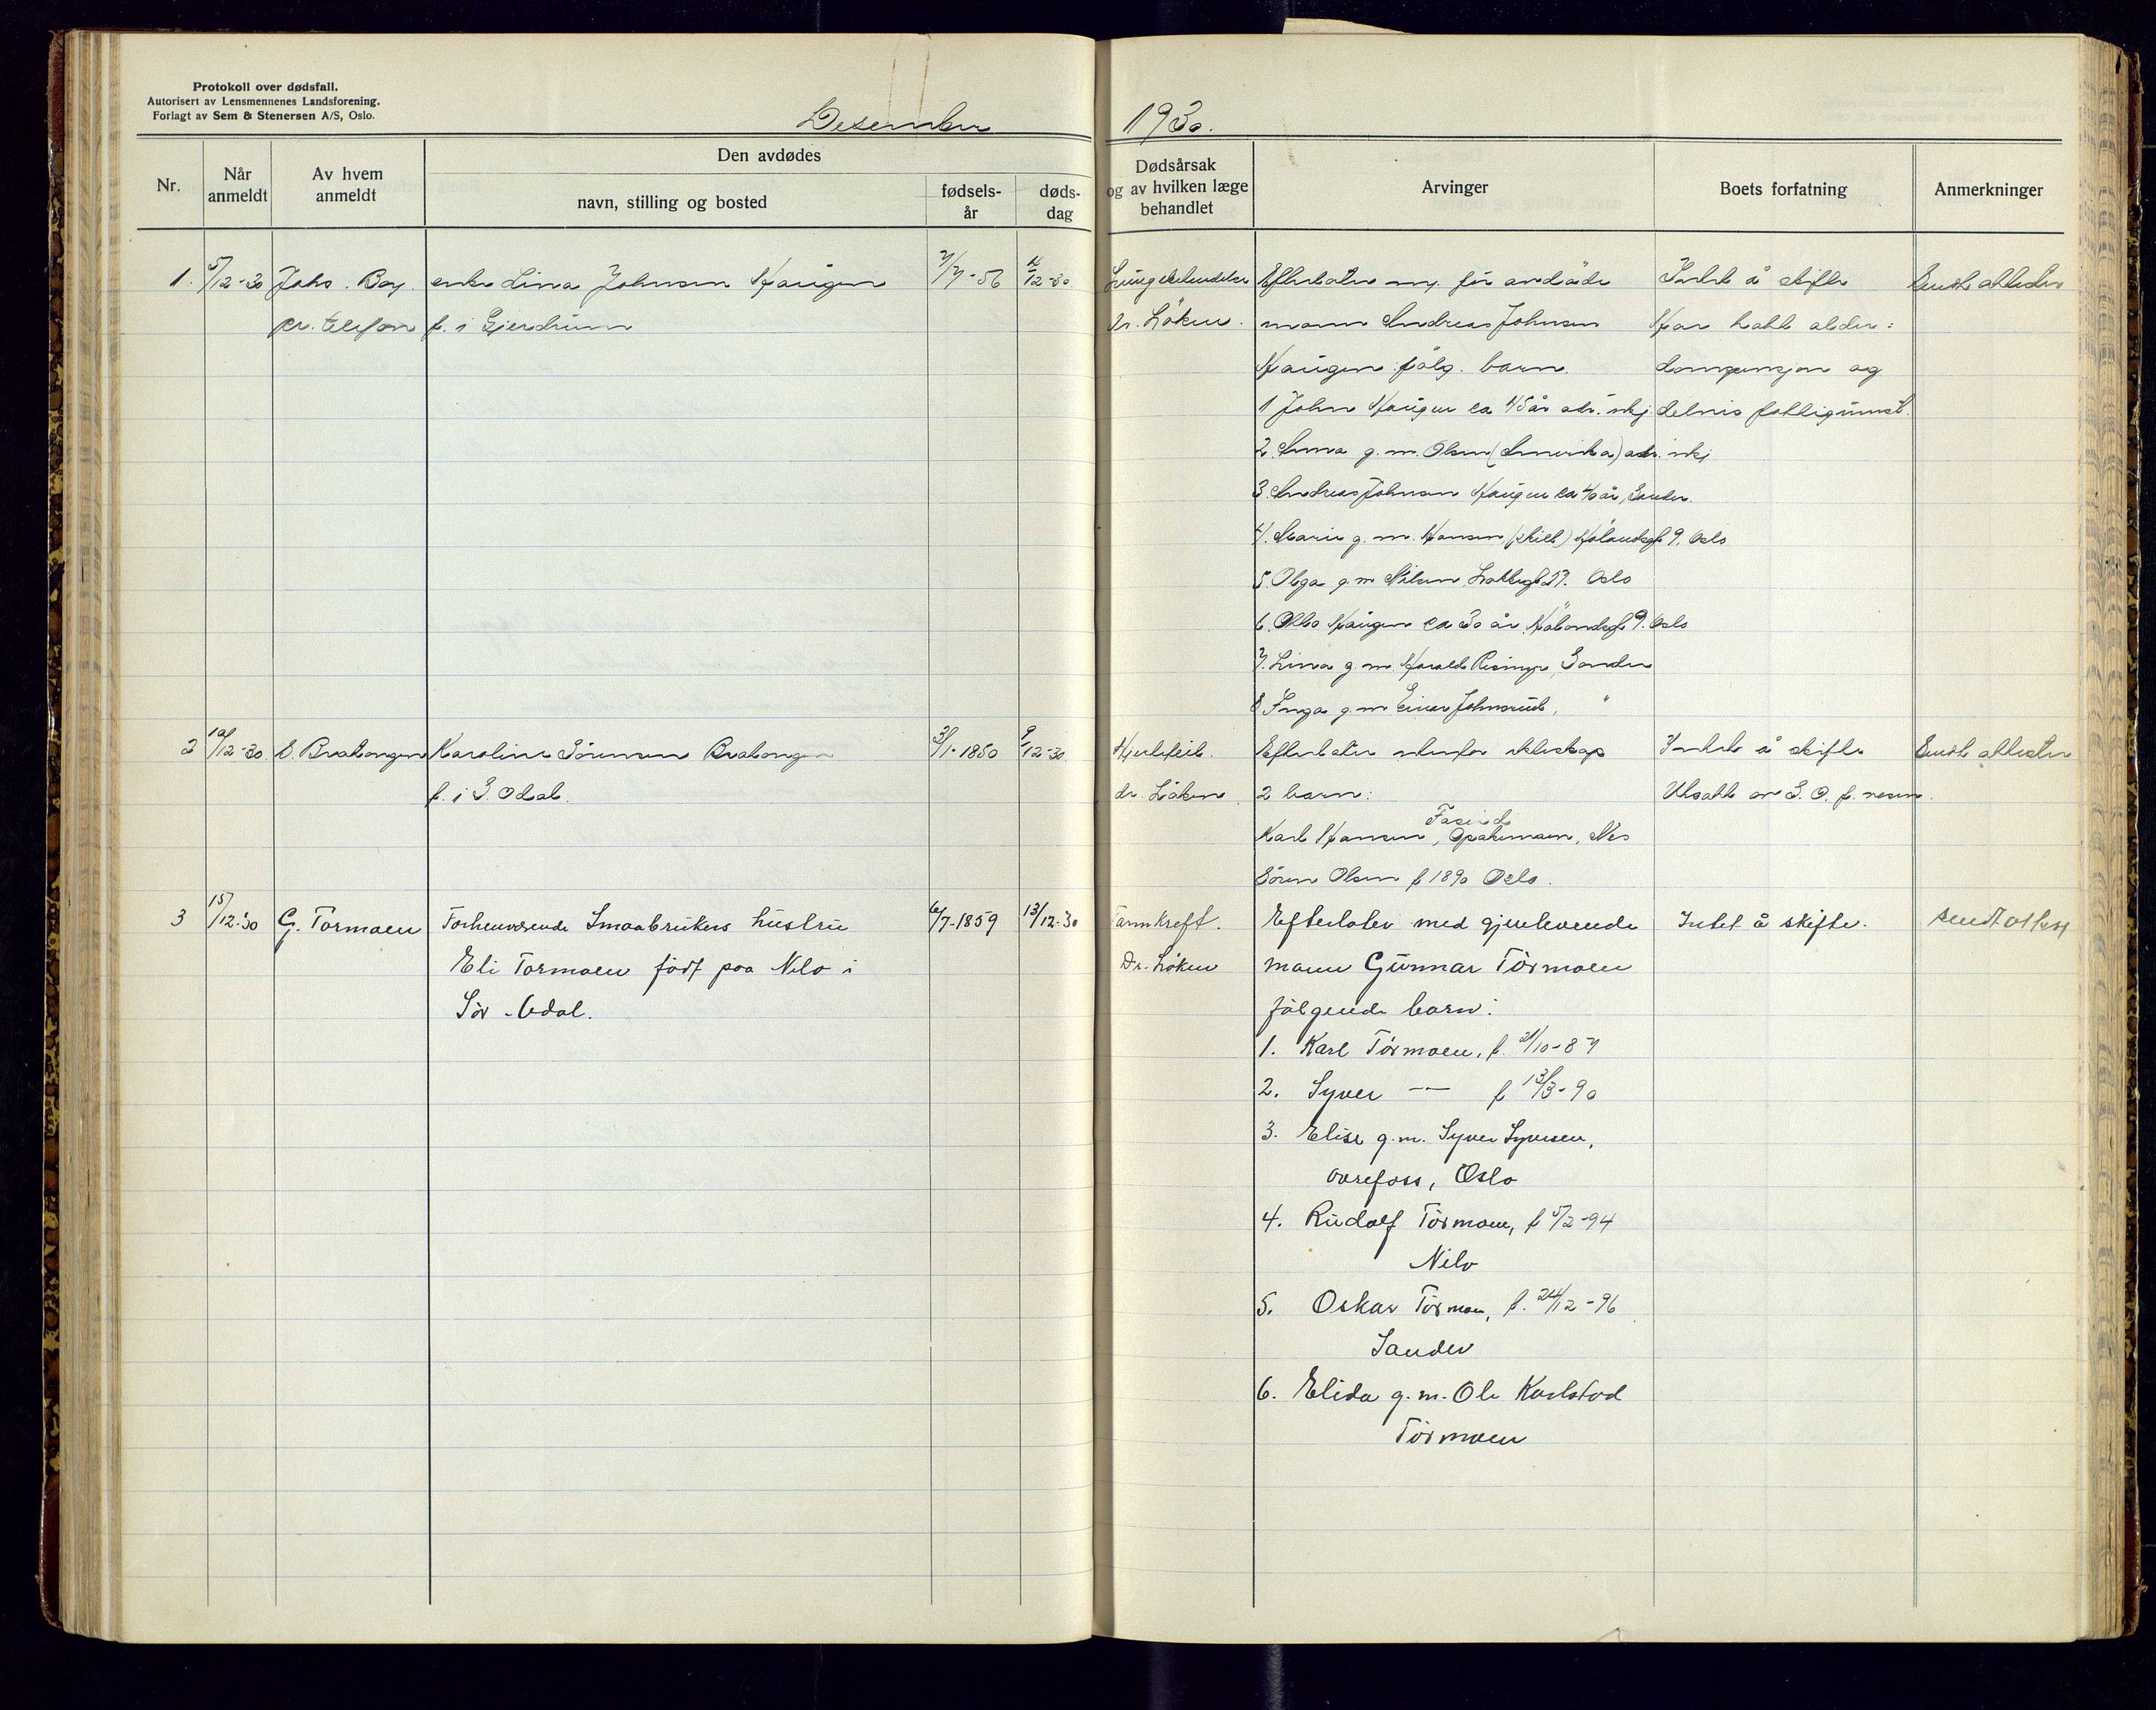 Protokoll over dødsfall.
Autorisert av Lensmennenes Landsforening.
Forlagt av Sem & Stenersen A/S, Oslo.
Desember 1930.
Nr.
Når anmeldt
Av hvem anmeldt
Den avdødes
navn, stilling og bosted
fødsels-år
døds-dag
Dødsårsak og av hvilken læge behandlet
Arvinger
Boets forfatning
Anmerkninger
1. 5/12-30 Johs. Bay enke Lina Johnsen Haugen 7/7-56 4/12-30 Lungebetendelse Efterlater m. før avdøde Intet å skifte Sendt attester
pr. telefon f. i Gjerdrum Dr. Løken. mann Andreas Johnsen Har hatt alder-
Haugen følg. barn. domspensjon og
1 John Haugen ca 45 år adr. ukj delvis fattigunderst.
2. Anna g. m. Olsen (Amerika) adr. ukj
3. Andreas Johnsen Haugen ca 40 år, Sander.
4. Marie g. m. Hansen (skilt) Hølandsgt 9, Oslo
5. Olga g m Nilsen, 27. Oslo
6. Otto Haugen ca 30 år, Hølandsgt 9. Oslo
7. Lina g. m Harald Risinge, Sander
8 Inga g. m Einar Johnsrud, "
2 10/12-30. S. Bratengen Karoline Sørensen Bratengen 3/1-1850 9/12-30. Hjertefeil. Efterlater utenfor ekteskap Intet å skifte Sendt attester
f. i S. Odal. dr. Løken. 2 barn: Utsatt av S. O. f. vesen.
Karl Hansen, Opakermoen, Nes
Søren Olsen f 1890 Oslo.
3 15/12-30 G. Tormoen Forhenværende Smaabrukers hustru 6/7-1859 13/12-30 Tarmkreft. Efterlater med gjenlevende Intet å skifte. sendt attest
Eli Tormoen født paa Nilo i Dr. Løken mann Gunnar Tormoen
Sør-Odal. følgende barn:
1. Karl Tormoen, f. 21/10-87
2. Syver — f 13/3-90
3. Elise g. m. Syver Syversen,
ovrefoss, Oslo
4. Rudolf Tormoen, f 5/2-94
Nilo
5. Oskar Tormoen, f. 24/12-96
Sander
6. Elida g. m. Ole Karlstad
Tormoen